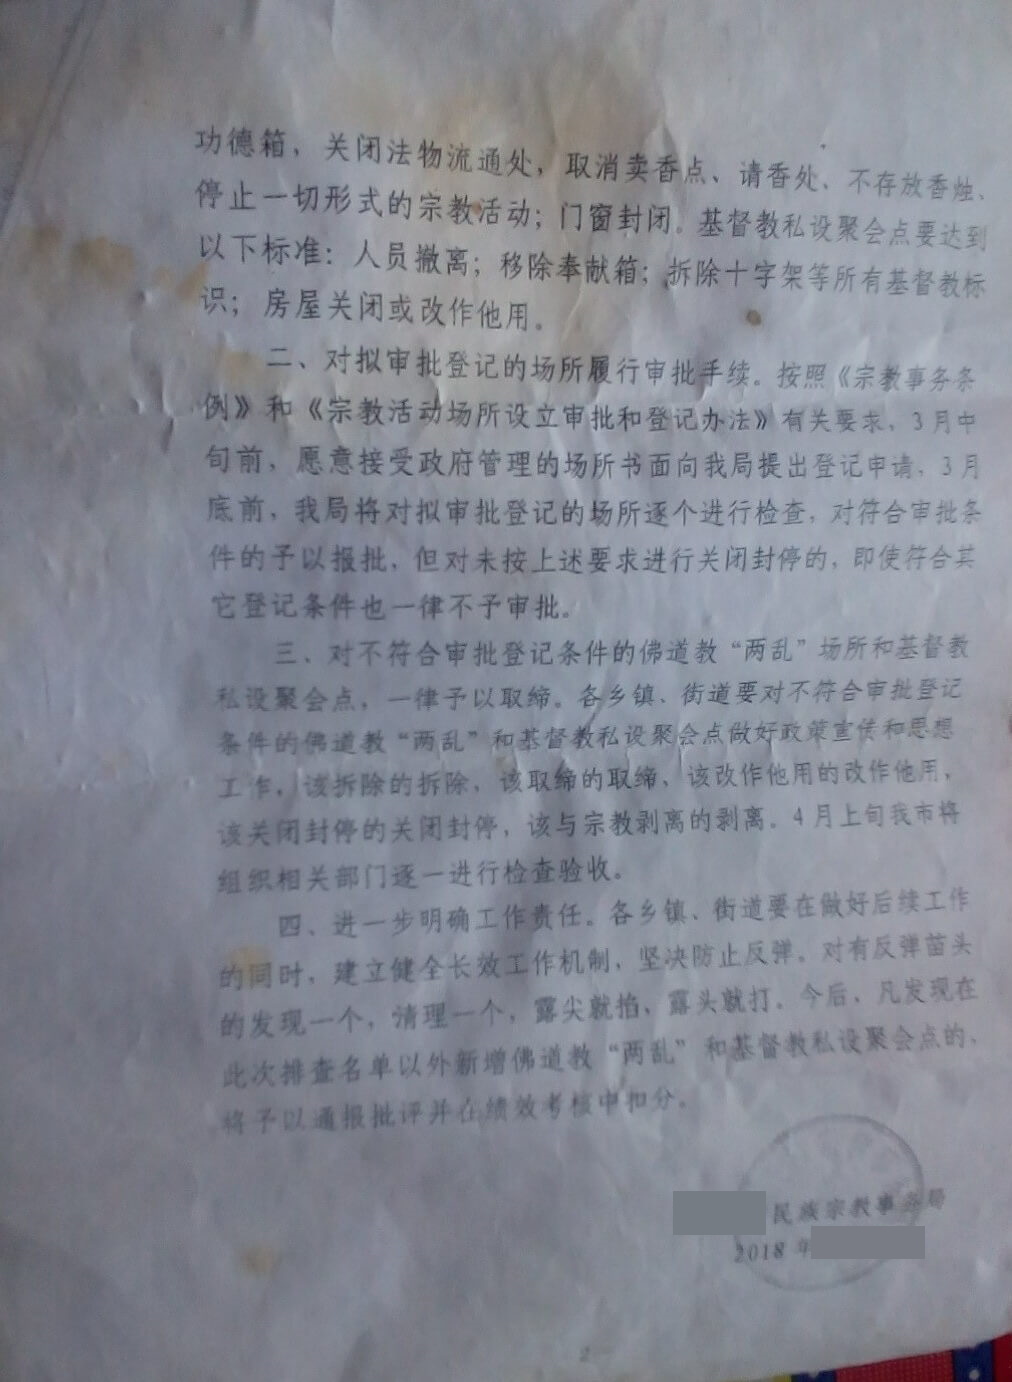 功德箱，关闭法物流通处，取消卖香点、请香处、不存放香烛、
停止一切形式的宗教活动；门窗封闭。基督教私设聚会点要达到
以下标准：人员撤离；移除奉献箱；拆除十字架等所有基督教标
识；房屋关闭或改作他用。
二、对拟审批登记的场所履行审批手续。按照《宗教事务条
例》和《宗教活动场所设立审批和登记办法》有关要求，3月中
旬前，愿意接受政府管理的场所书面向我局提出登记申请，3月
底前，我局将对拟审批登记的场所逐个进行检查，对符合审批条
件的予以报批，但对未按上述要求进行关闭封停的，即使符合其
它登记条件也一律不予审批。
三、对不符合审批登记条件的佛道教“两乱”场所和基督教
私设聚会点，一律予以取缔。各乡镇、街道要对不符合审批登记
条件的佛道教“两乱”和基督教私设聚会点做好政策宣传和思想
工作，该拆除的拆除，该取缔的取缔，该改作他用的改作他用，
该关闭封停的关闭封停，该与宗教剥离的剥离。4月上旬我市将
组织相关部门逐一进行检查验收。
四、进一步明确工作责任。各乡镇、街道要在做好后续工作
的同时，建立健全长效工作机制，坚决防止反弹。对有反弹苗头
的发现一个，清理一个，露尖就掐，露头就打。今后，凡发现在
此次排查名单以外新增佛道教“两乱”和基督教私设聚会点的，
将予以通报批评并在绩效考核中扣分。
民族宗教事务局
2018年
2